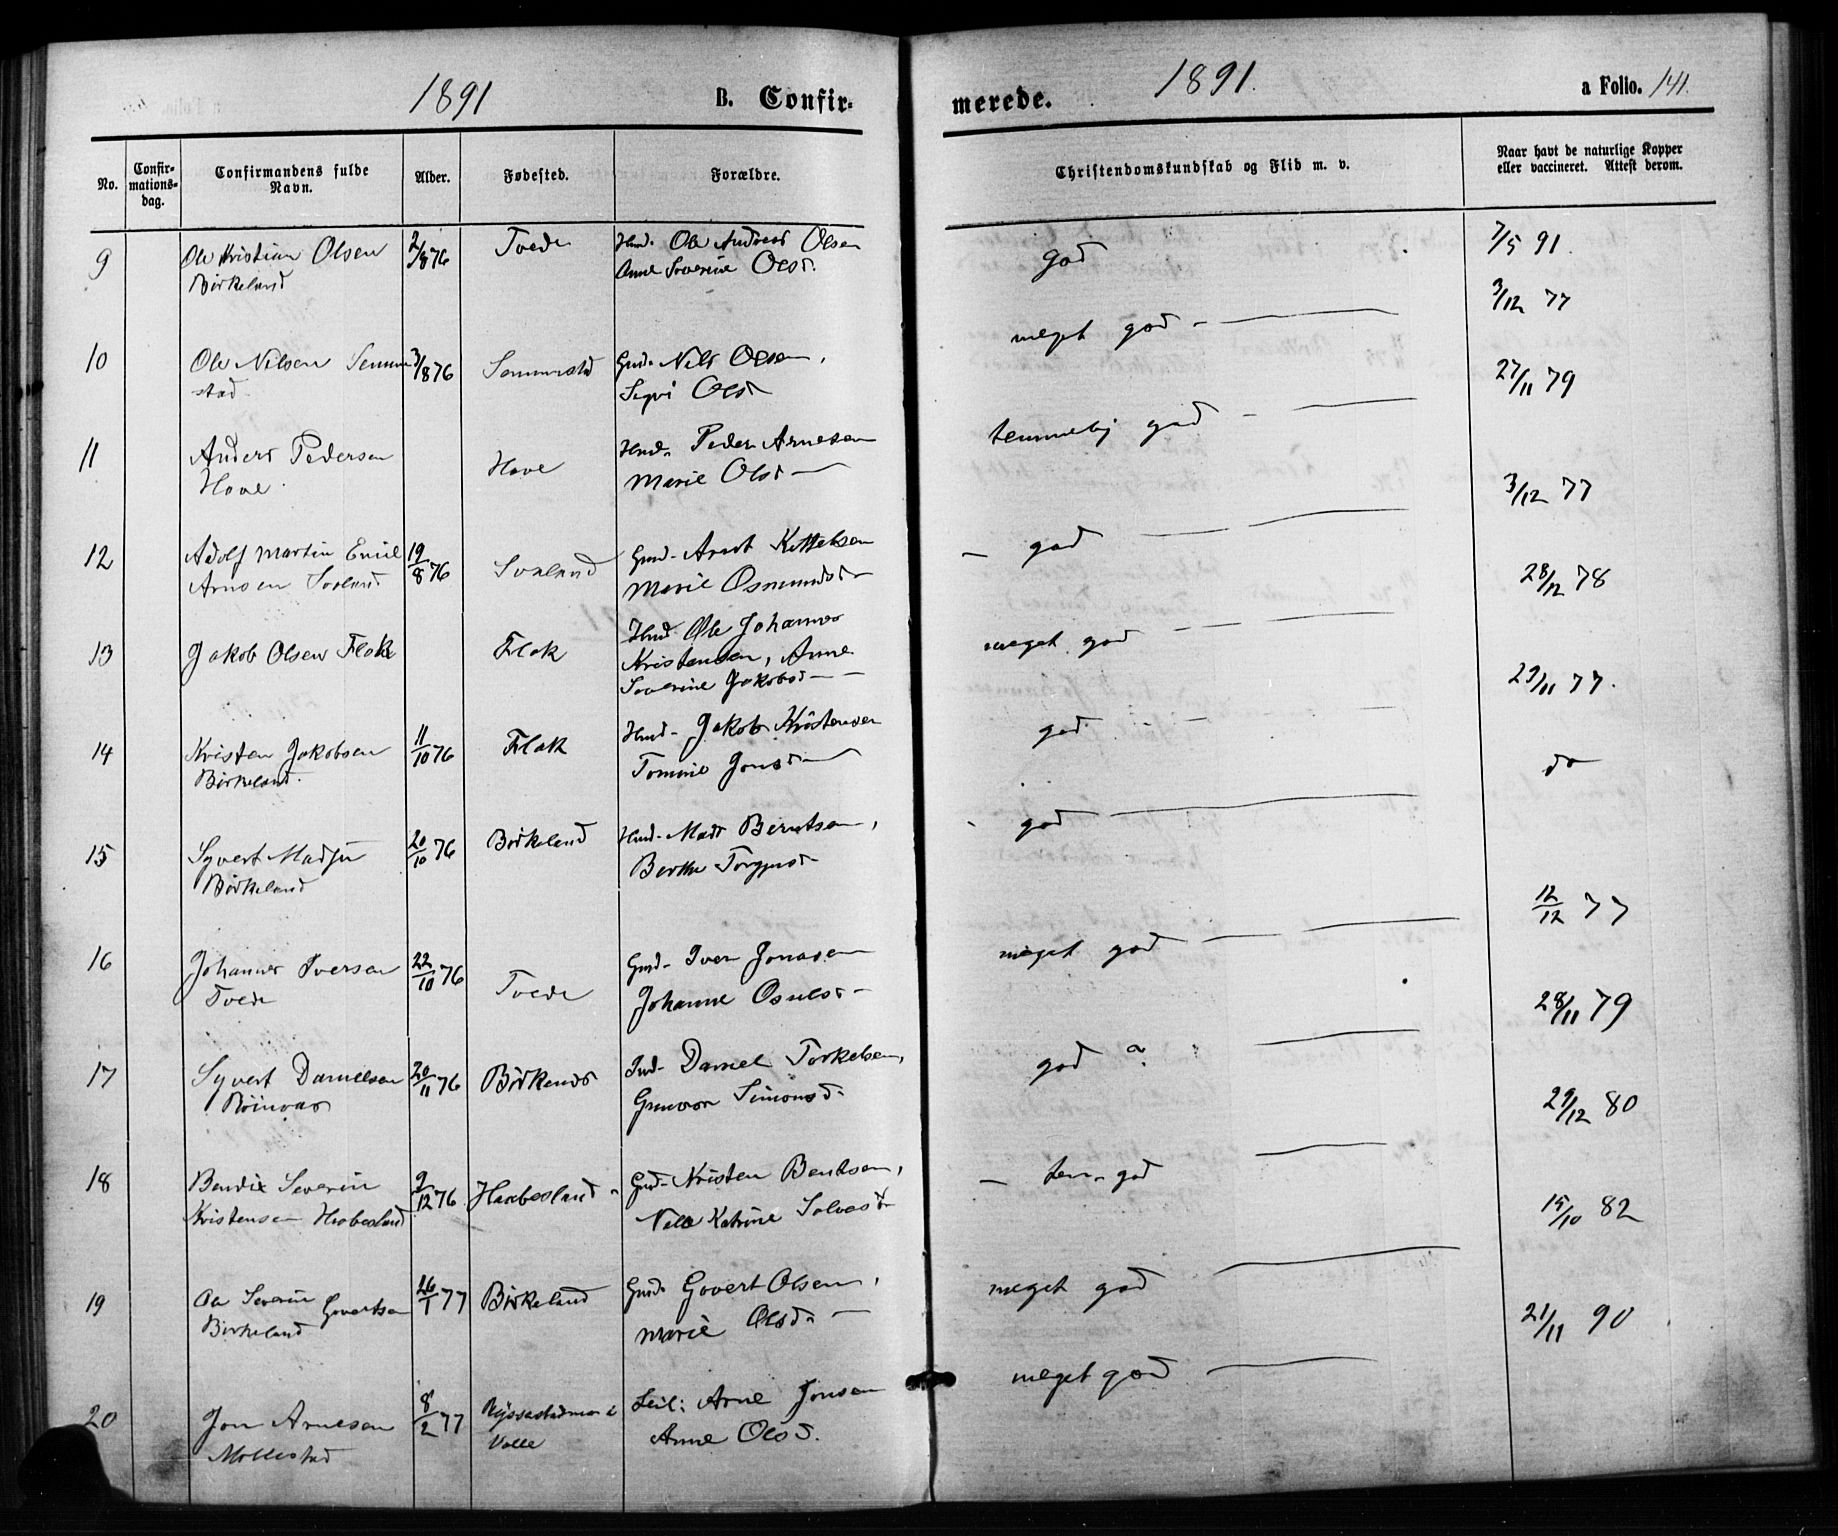 1891 B. Confir-
merede. 1891. a Folio. 141.
No. Confir-mations-dag. Confirmandens fulde Navn. Alder. Fødested. Forældre.
Christendomskundskab og Flid m. v. Naar havt de naturlige Kopper eller vaccineret. Attest derom.
9 Ole Kristian Olsen 2/8 76 Tvede Hmd. Ole Andreas Olsen god 7/5 91.
Birkeland Anne Severine Olsd.
3/12 77
meget god -
10 Ole Nilsen Semme 3/8 76 Semmestad Gmd. Nils Olsen,
stad Olsd
27/11 79
temmelig god -
11 Anders Pedersen Hove Hmd. Peder Arnesen
Hove. Marie Olsd
3/12 77
12 Adolf Martin Emil 19/8 76 Svaland Gmd. Arnt Kittelsen - god
Arnsen Svaland Marie Osmundsd
28/12 78
13 Jakob Olsen Flak Flak Hmd. Ole Johannes meget god
Kristensen, Anne
Severine Jakobsd
29/11 77.
14 Kristen Jakobsen 11/10 76 Flak Hmd. Jakob Kristensen god
Birkeland. Tomine Jonsd
do
15 Syvert Madsen 20/10 76 Birkeland Hmd. Mads Berntsen, - god
Birkeland Berthe Torgjusd
12/12 77
16 Johannes Iversen 22/10 76 Tvede Gmd. Iver Jonasen meget god
Tvede Johanne Osulsd
28/11 79
17 Syvert Danielsen 20/11 76 Daniel Torkelsen, god
Gunvor Simonsd.
29/12 80
18 Bendix Severin 9/12 76 Haabesland Gmd. Kristen Bentsen, - tem. god
Kristensen Haabesland Katrine
15/10 82
19 Severin Govertsen 26/1 77 Birkeland Gmd. Govert Olsen, meget god
Birkeland Marie Olsd.
21/11 90
20 Jon Arnesen 8/2 77 Leil: Arne Jonsen meget god
Mollestad Valle Anne Olsd.